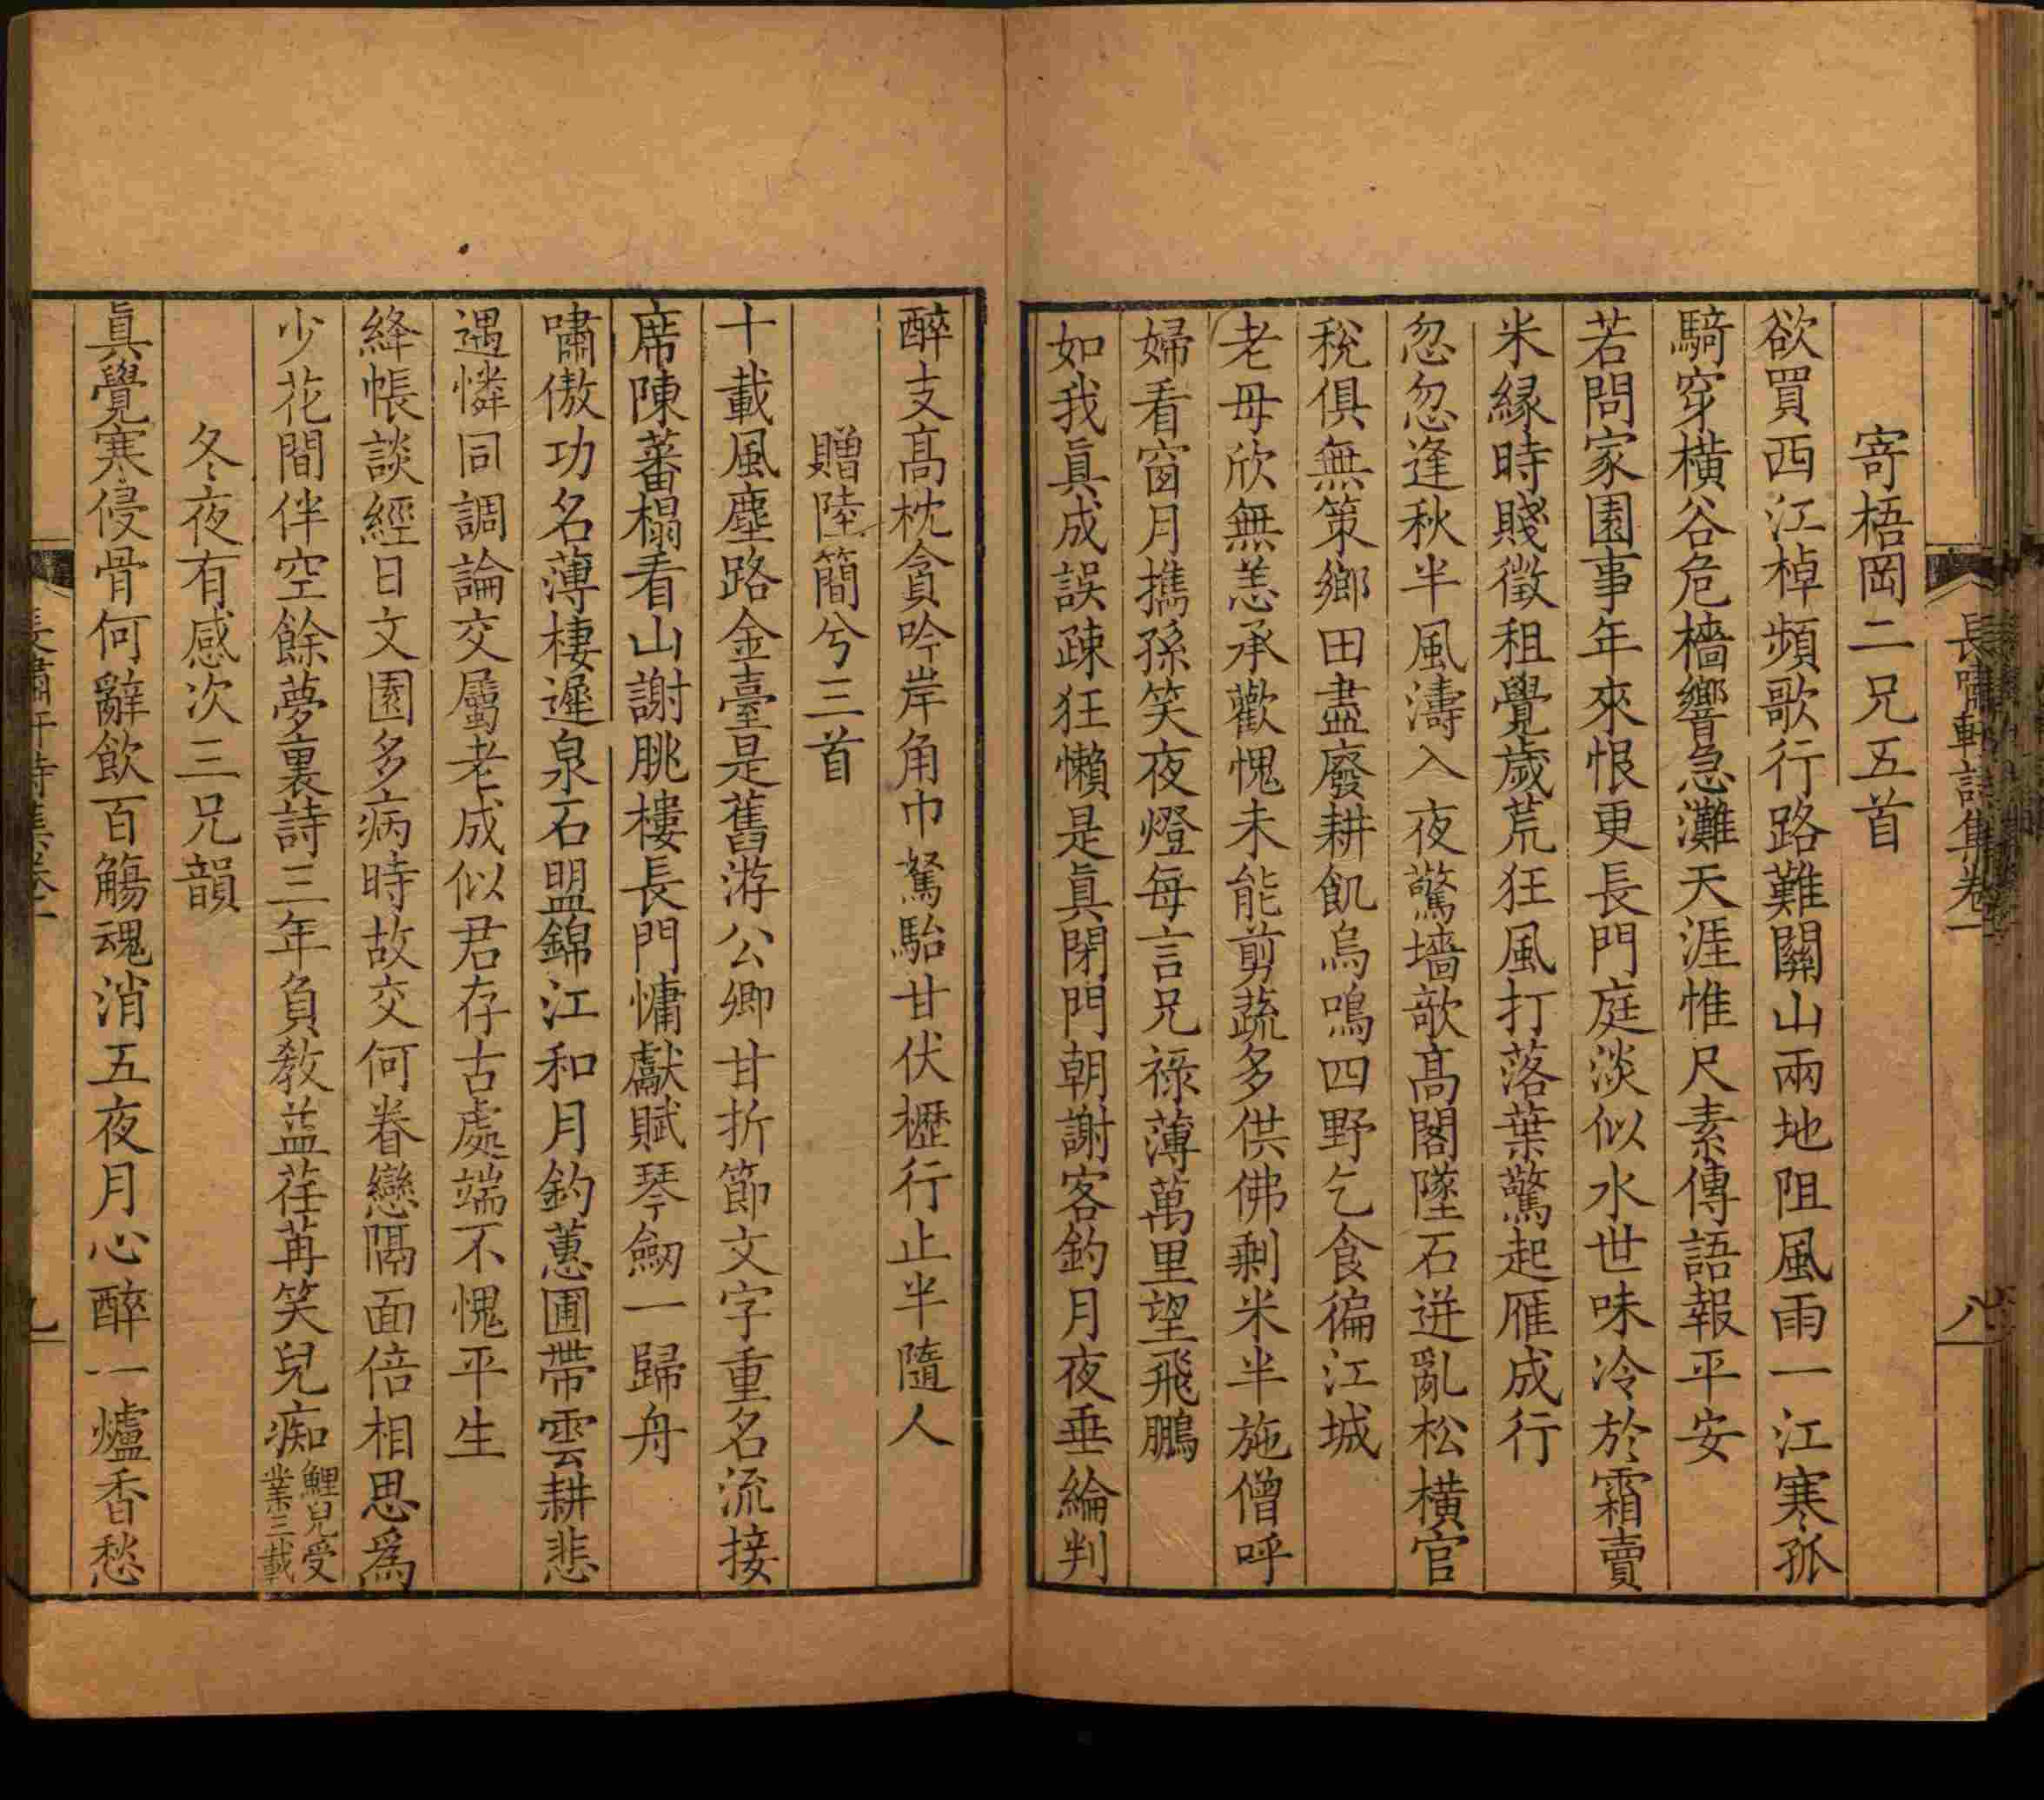 長嘯軒詩集卷一
八
寄梧岡二兄五首
欲買西江棹頻歌行路難關山兩地阻風雨一江寒孤
騎穿橫谷危檣響急灘天涯惟尺素傳語報平安
若問家園事年來恨更長門庭淡似水世味冷於霜賣
米緣時賤徵租覺歲荒狂風打落葉驚起雁成行
忽忽逢秋半風濤入夜驚墻欹高閣墜石迸亂松橫官
稅俱無策鄉田盡廢耕飢烏鳴四野乞食徧江城
老母欣無恙承歡愧未能剪蔬多供佛剩米半施僧呼
婦看窗月攜孫笑夜燈每言兄祿薄萬里望飛鵬
如我眞成誤疎狂懶是眞閉門朝謝客釣月夜垂綸判
醉支高枕貪吟岸角巾駑駘甘伏櫪行止半隨人
贈陸簡兮三首
十載風塵路金臺是舊游公卿甘折節文字重名流接
席陳蕃榻看山謝朓樓長門慵獻賦琴劒一歸舟
嘯傲功名薄棲遲泉石盟錦江和月釣蕙圃帶雲耕悲
遇憐同調論交屬老成似君存古處端不愧平生
絳帳談經日文園多病時故交何眷戀隔面倍相思爲
少花間伴空餘夢裏詩三年負教益荏苒笑兒痴鯉兒受業三載
冬夜有感次三兄韻
眞覺寒侵骨何辭飲百觴魂消五夜月心醉一爐香愁
長嘯軒詩集卷一
九